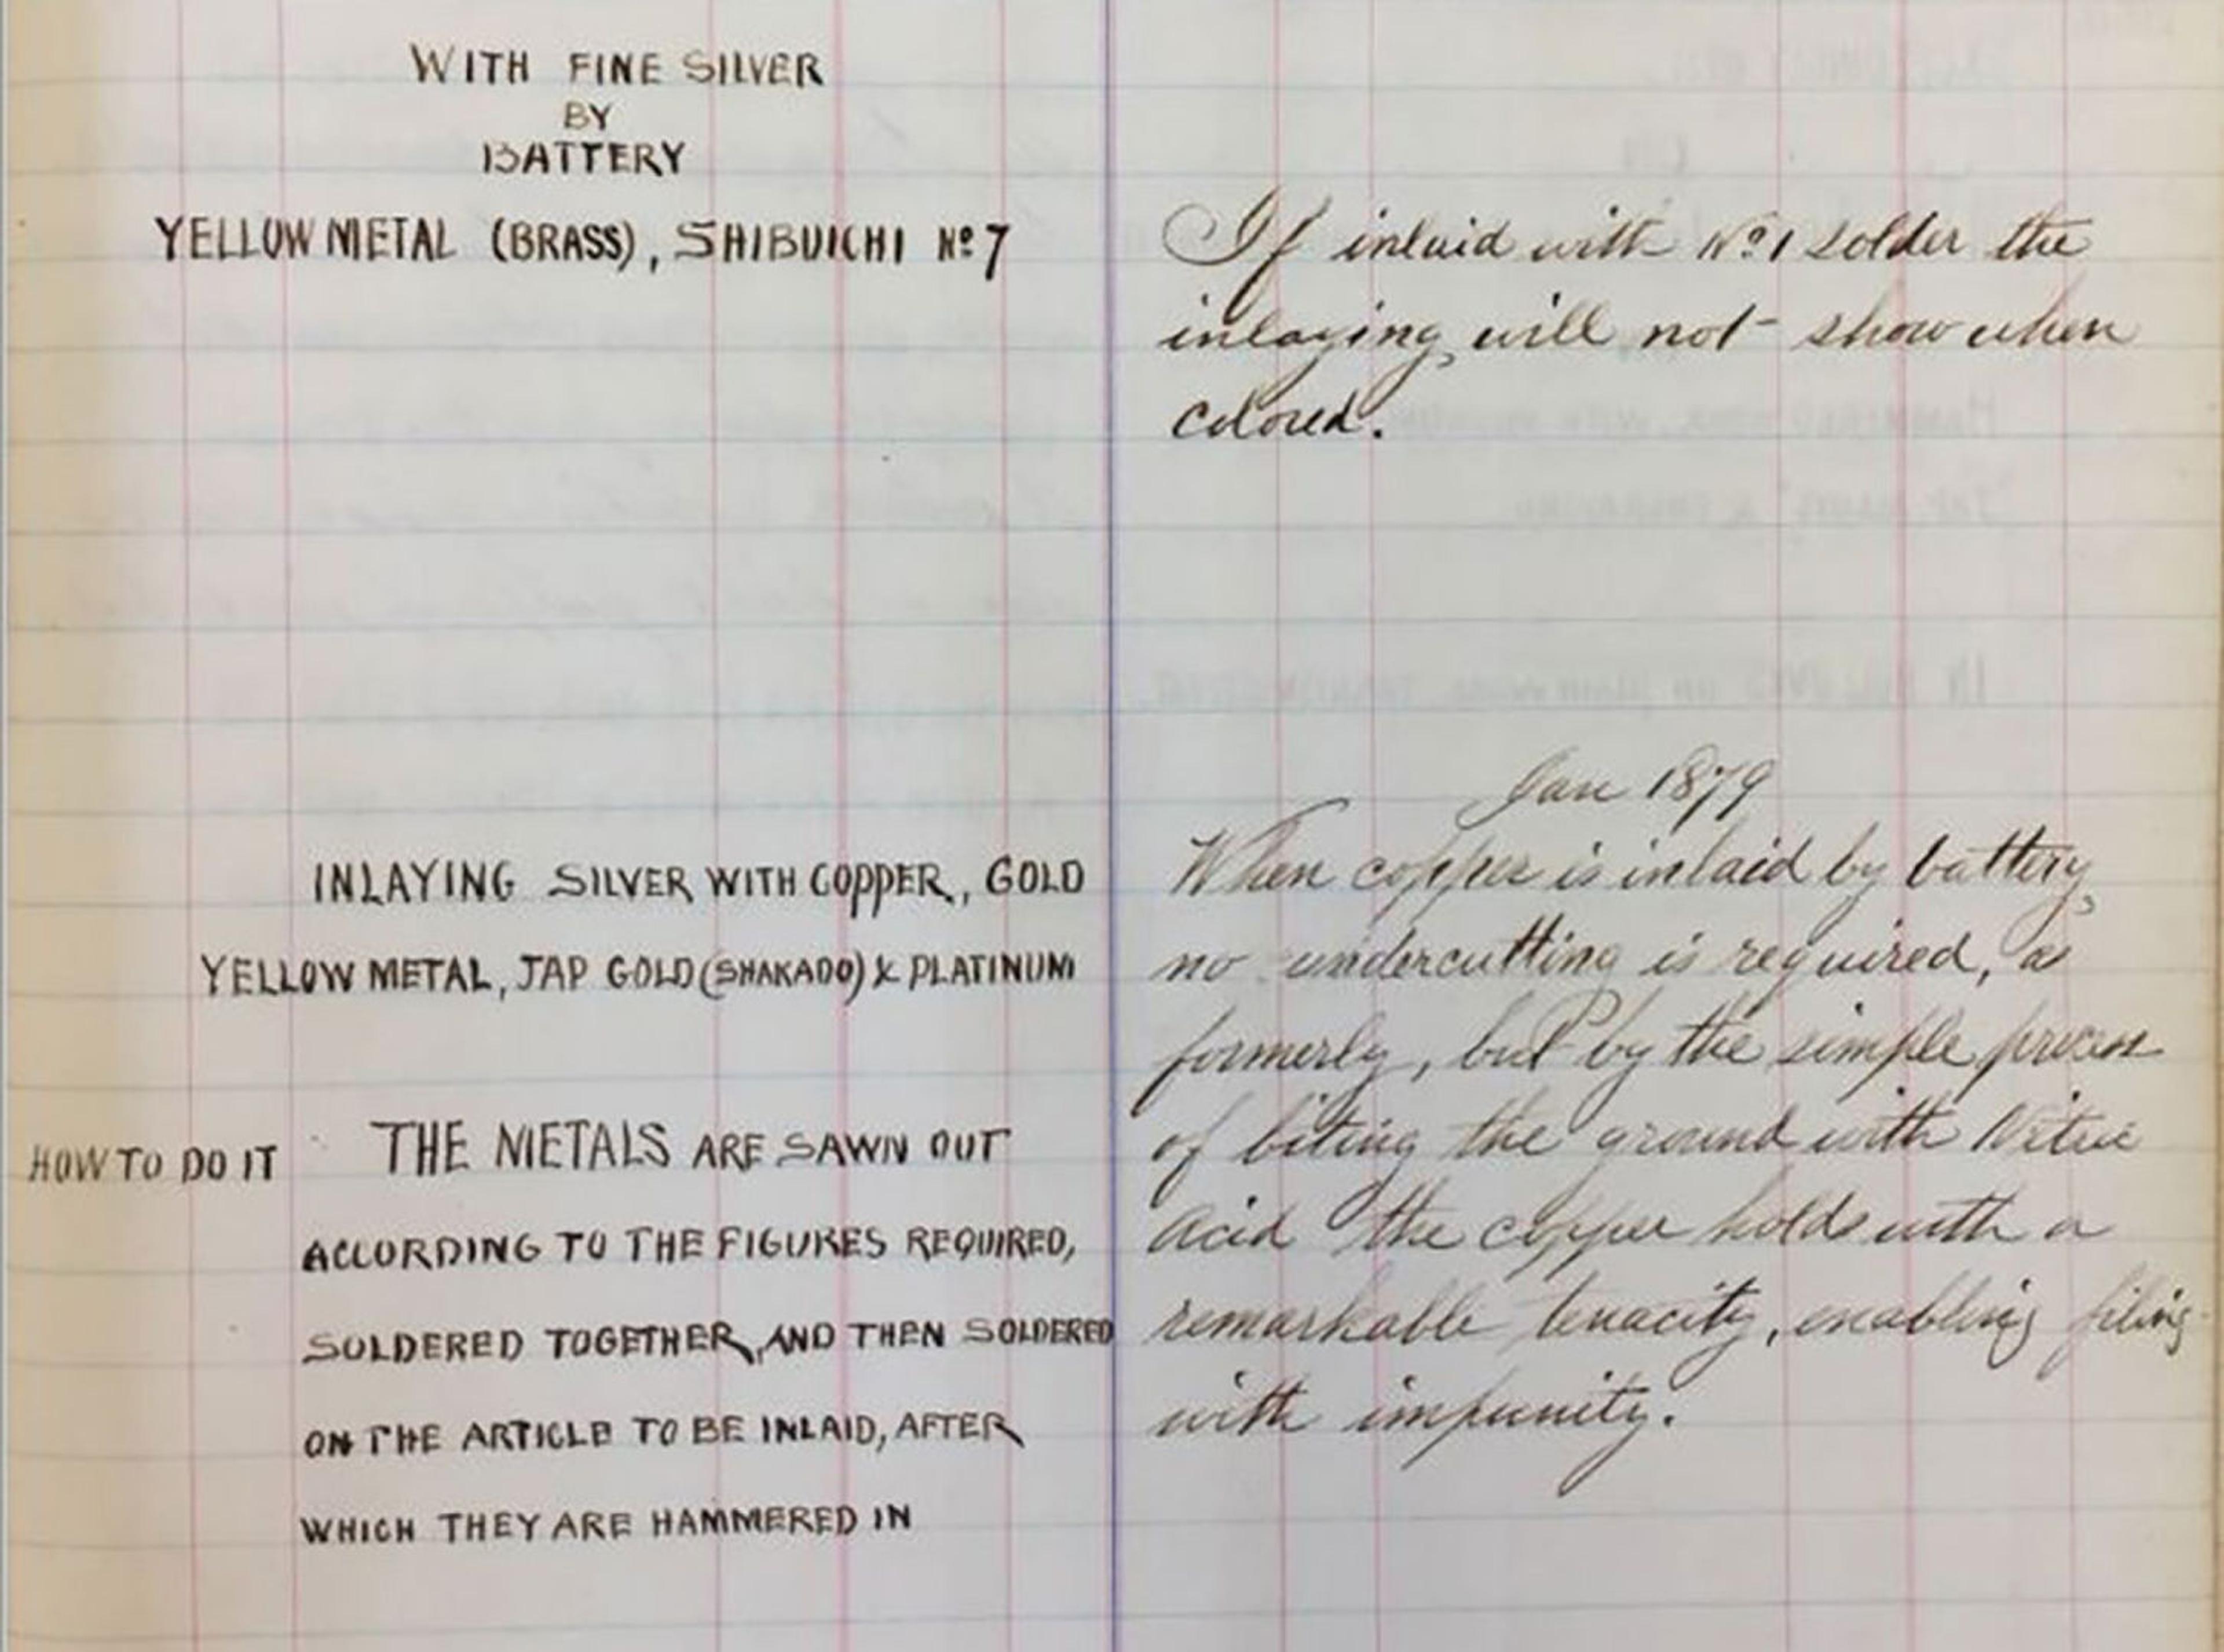 WITH FINE SILVER
BY
BATTERY
YELLOW METAL (BRASS), SHIBUICHI Nº 7
INLAYING SILVER WITH COPPER, GOLD
YELLOW METAL, JAP GOLD (SHAKADO) & PLATINUM
HOW TO DO IT THE METALS ARE SAWN OUT
ACCORDING TO THE FIGURES REQUIRED,
SOLDERED TOGETHER, AND THEN SOLDERED
ON THE ARTICLE TO BE INLAID, AFTER
WHICH THEY ARE HAMMERED IN
If inlaid with Nº 1 solder the
inlaying, will not show when
colored.
Jan 1879
When copper is inlaid by battery,
no undercutting is required, as
formerly, but by the simple process
of biting the ground with Nitric
Acid the copper holds with a
remarkable tenacity, enabling filing
with impunity.